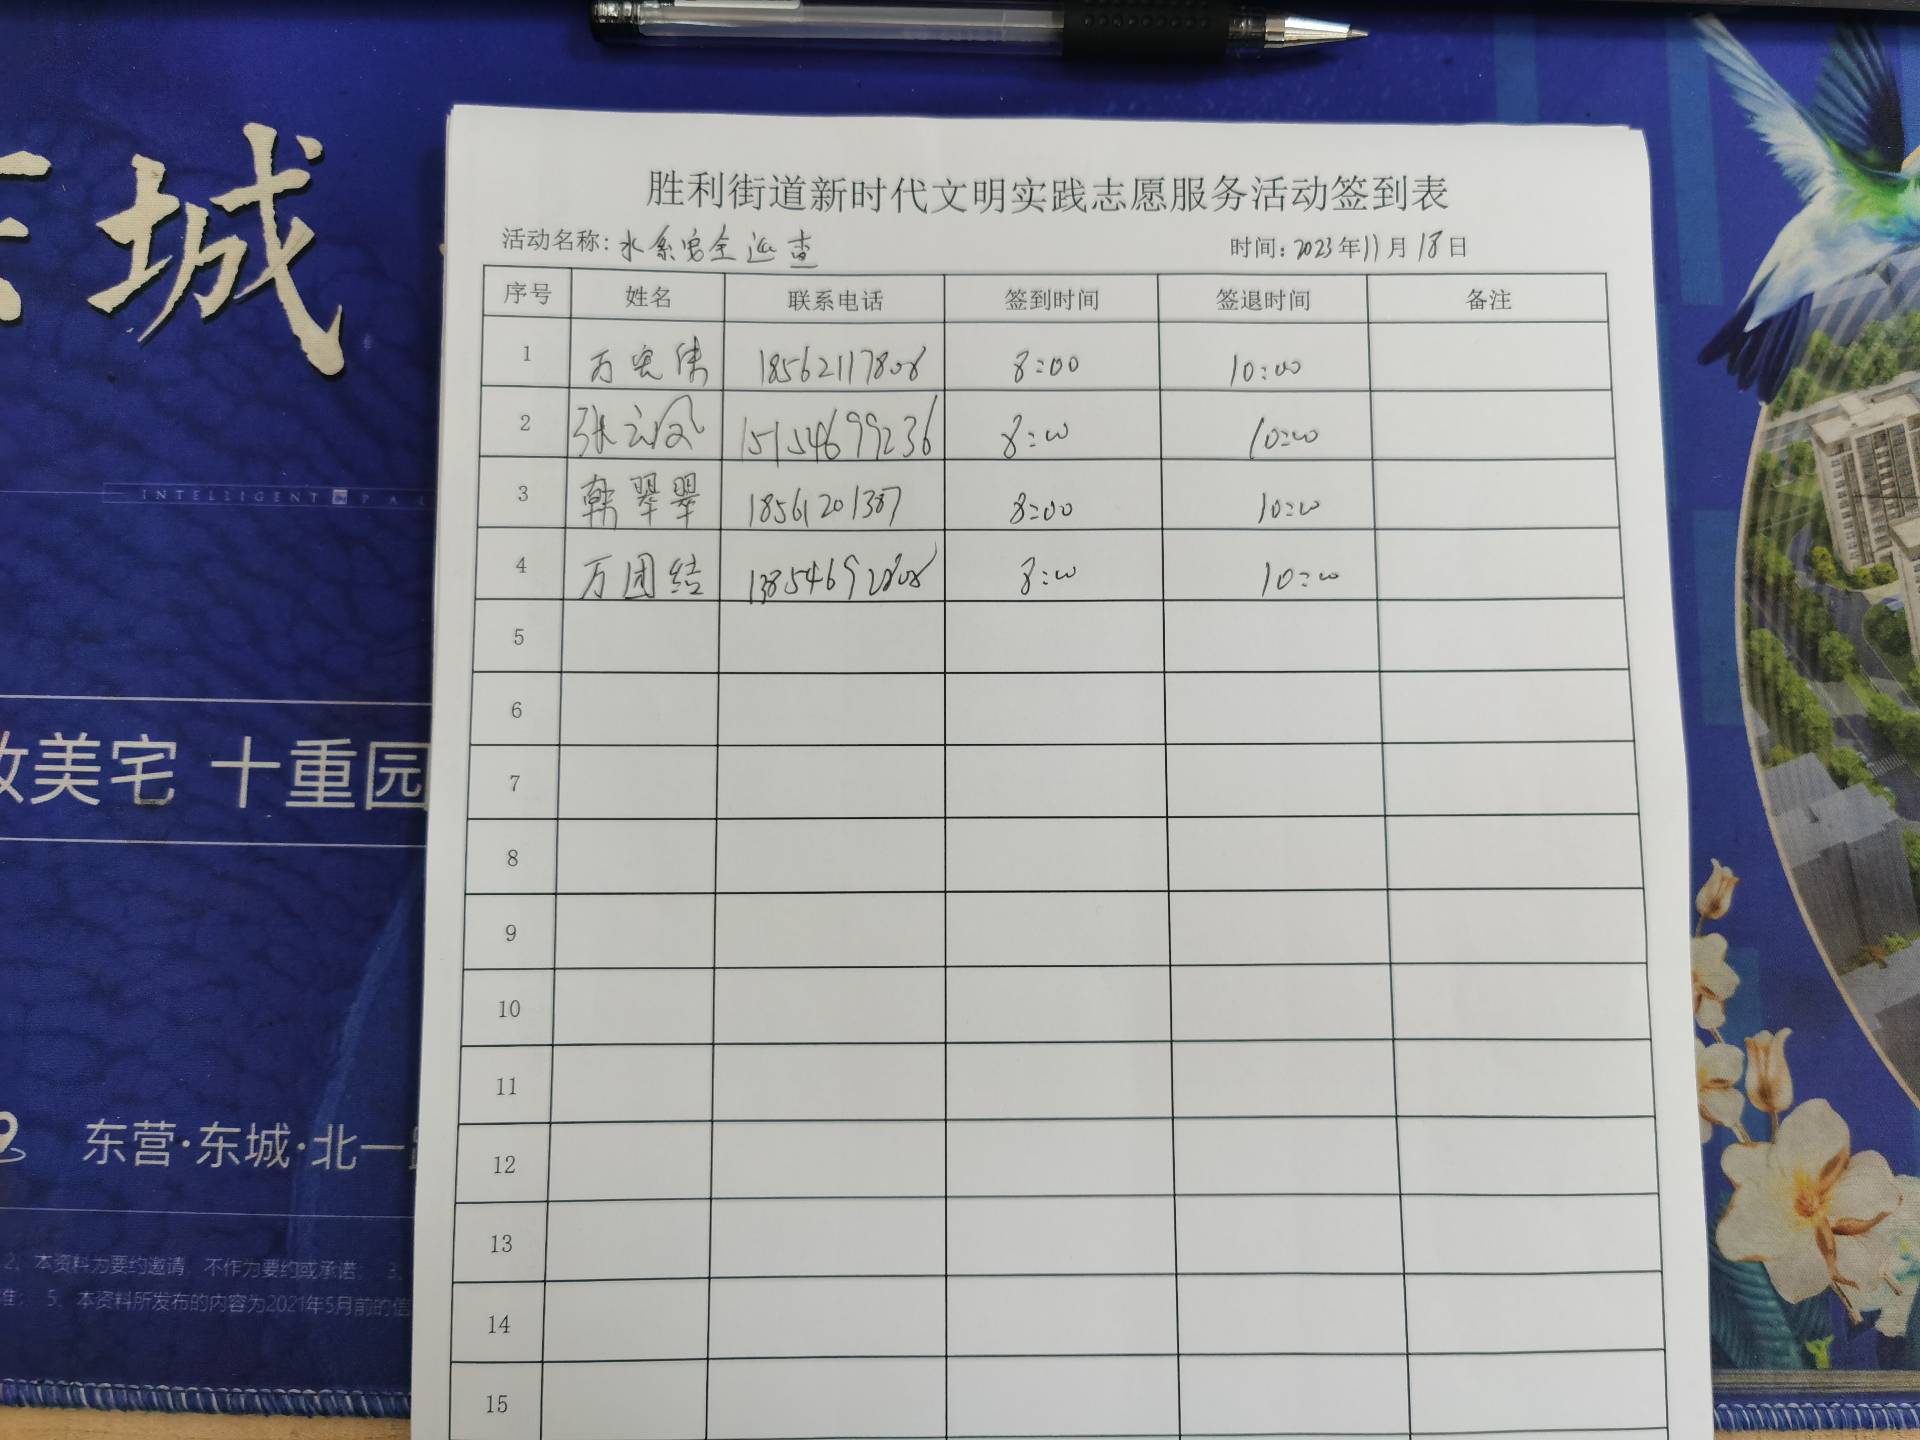 东城
INTELLIGENT PAL
美宅 十重园
东营·东城·北一路
2、本资料为要约邀请，不作为要约或承诺； 3、
准； 5、本资料所发布的内容为2021年5月前的信
胜利街道新时代文明实践志愿服务活动签到表
活动名称：水系安全巡查 时间：2023年11月18日
序号 姓名 联系电话 签到时间 签退时间 备注
1 万宪伟 18562117808 8:00 10:00
2 张云凤 15154699236 8:00 10:00
3 韩翠翠 18561201387 8:00 10:00
4 万团结 13854692808 8:00 10:00
5
6
7
8
9
10
11
12
13
14
15